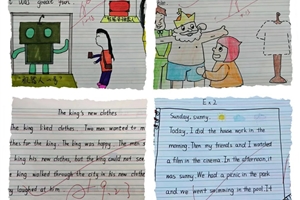 was great fun.
The king's new clothes
king liked clothes. Two men wanted to m
thes for the king. The king was happy. The men s
king his new clothes, but the king could not see
king walked through the city in his new clothe
laughed at him
Ex 2
Sunday, sunny
Today, I did the house work in the
morning. Then my friends and I watched
a film in the cinema. In the afternoon, it
was sunny. We had a picnic in the park
and we went swimming in the pool. It